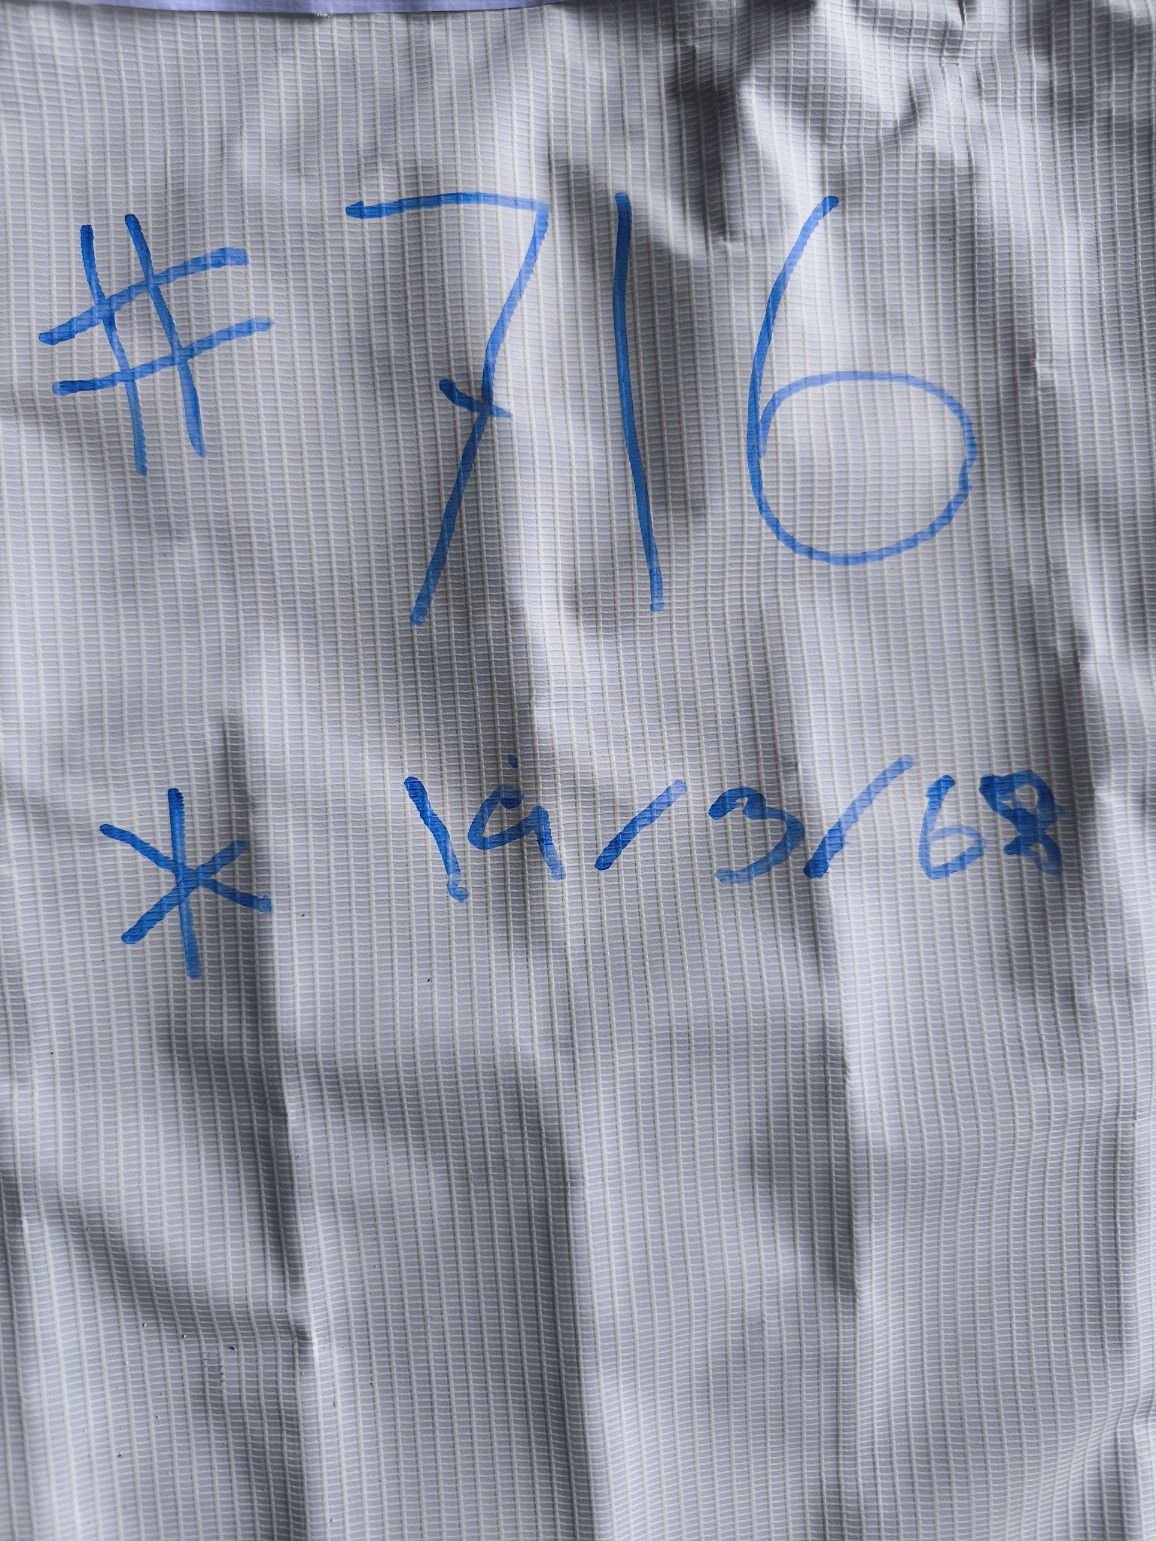 #716
* 19/3/68